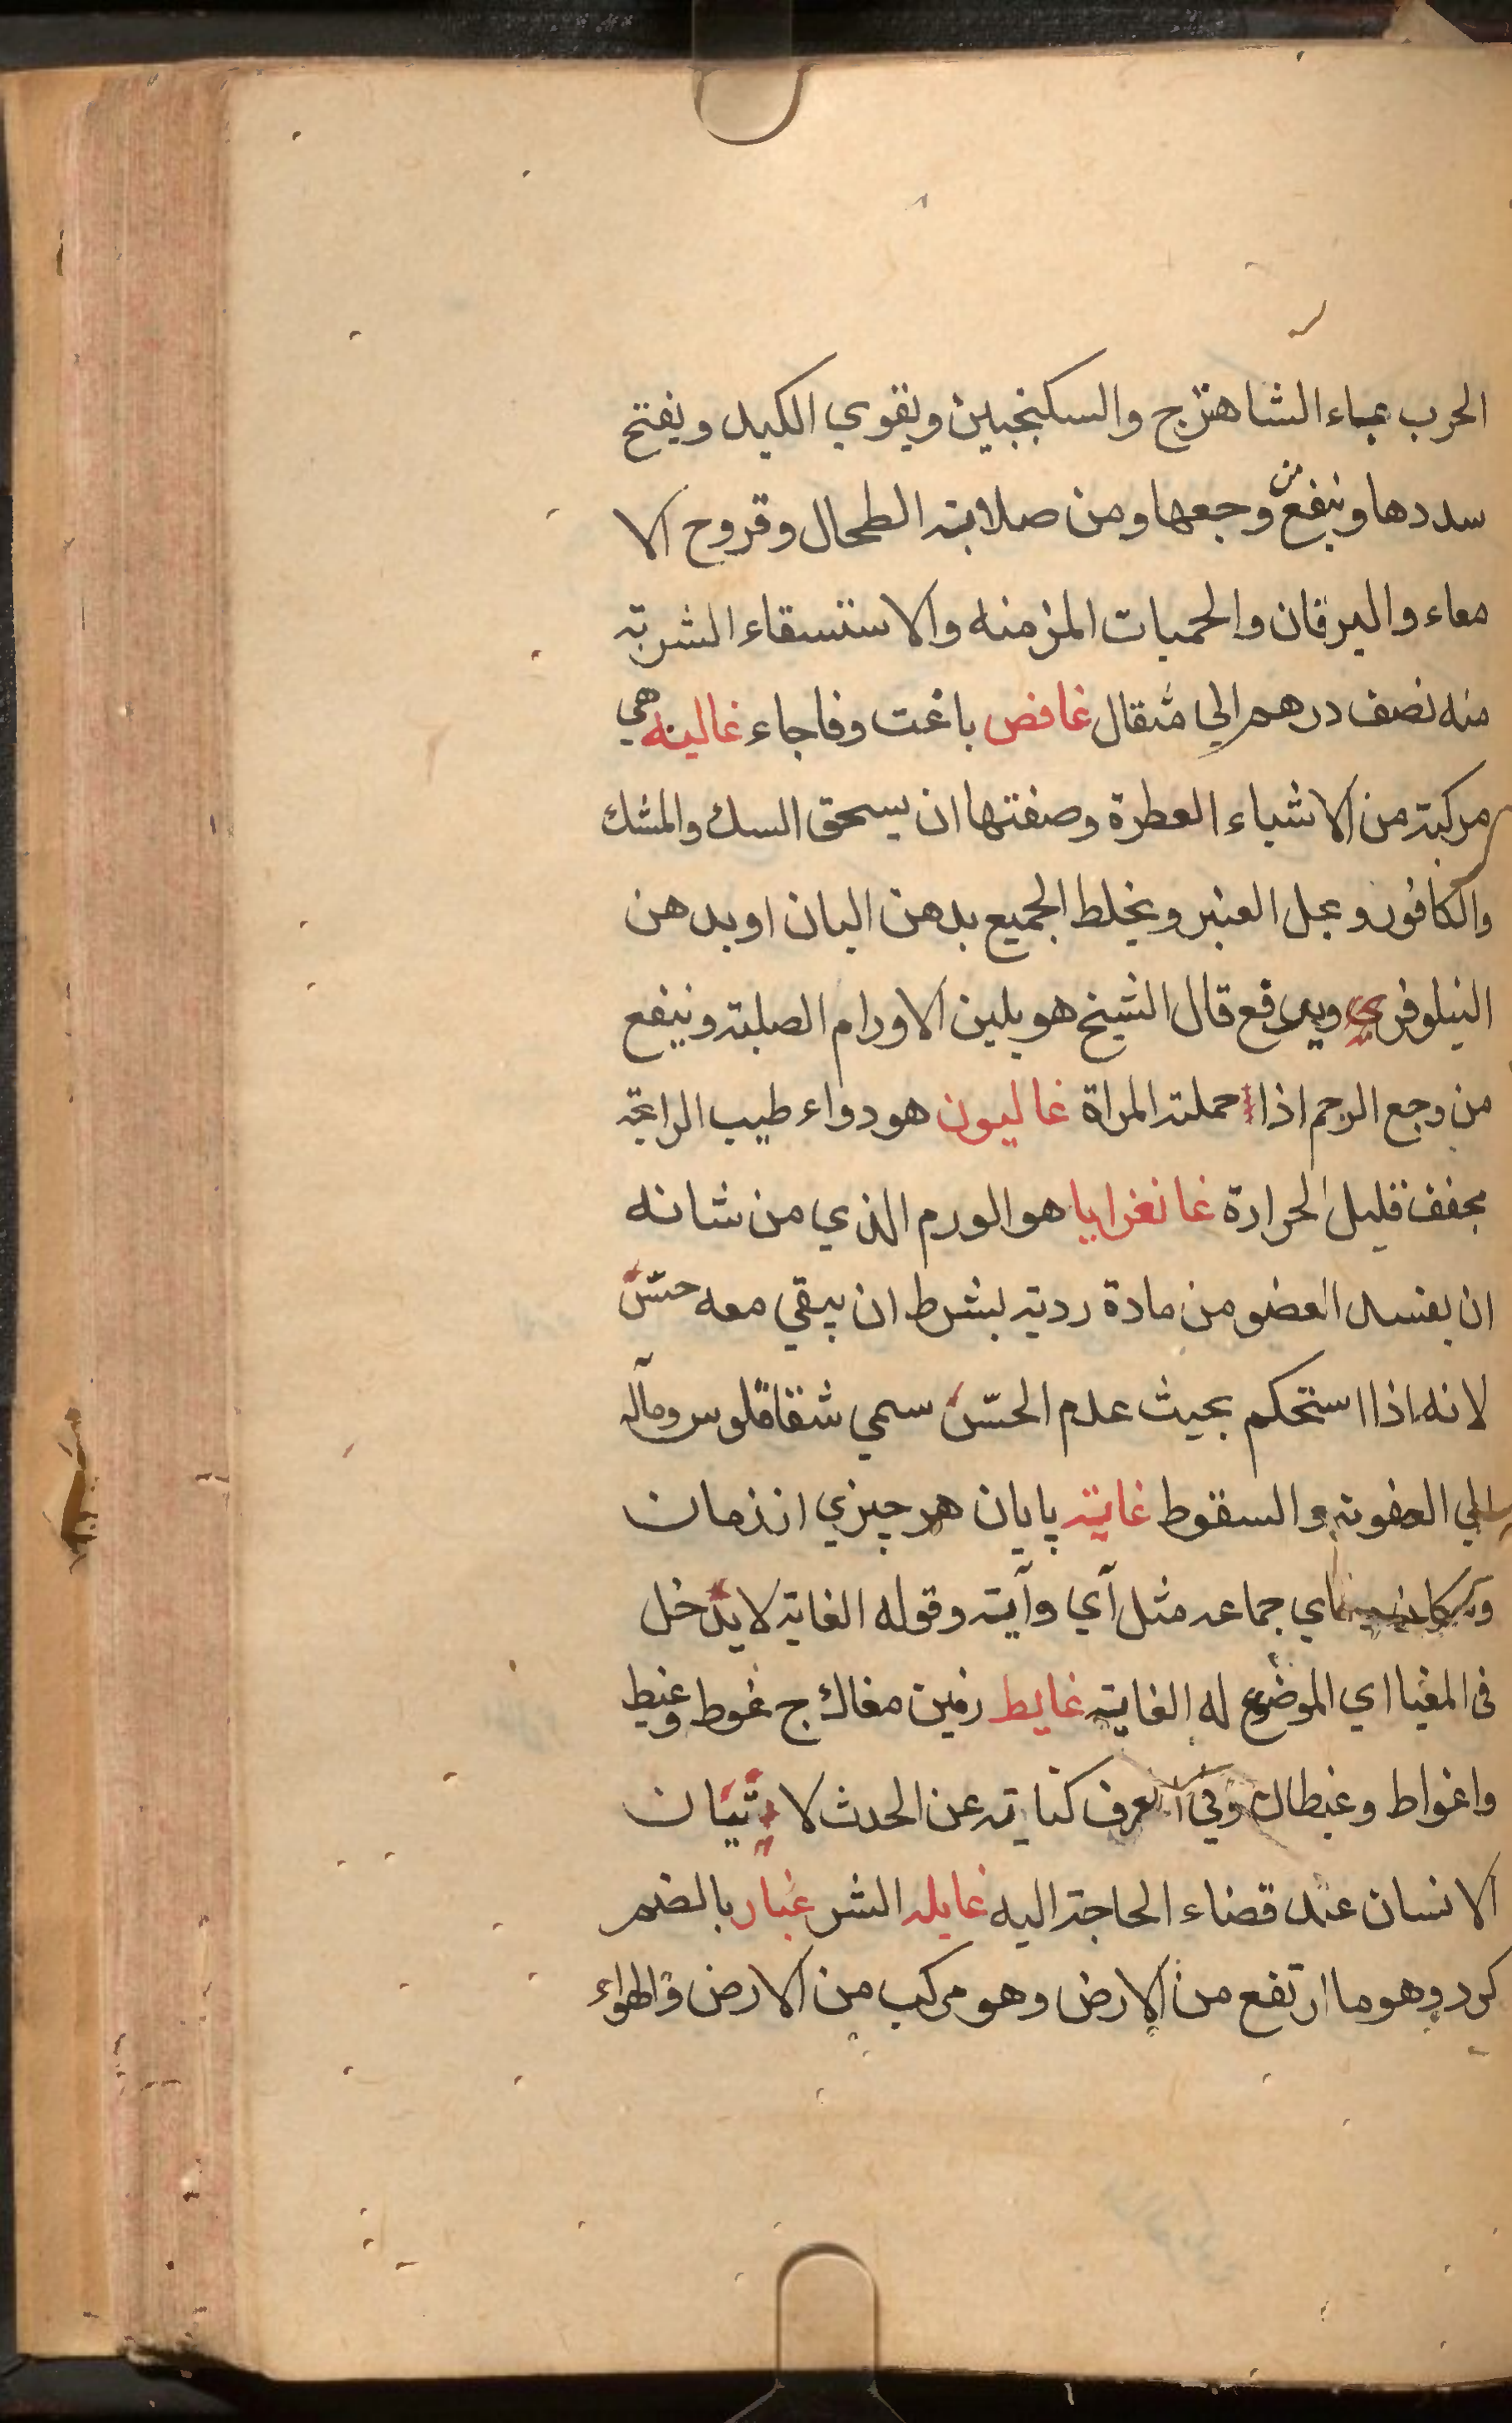 الحرب بماء الشاهترج والسكنجبين ويقوي الكبد ويفتح
سددها وينفع من وجعها ومن صلابة الطحال وقروح الا
معاء واليرقان والحميات المزمنه والاستسقاء الشربة
منه نصف درهم الي مثقال غافص باغت وفاجاء غالية هي
مركبة من الاشياء العطرة وصفتها ان يسحق السك والمشك
والكافور ويحل العنبر ويخلط الجميع بدهن البان او بدهن
النيلوفر ويرفع قال الشيخ هو يلين الاورام الصلبة وينفع
من وجع الرحم اذا حملته المراة غاليون هو دواء طيب الرائحة
مجفف قليل الحرارة غانغرايا هو الورم الذي من شانه
ان يفسد العضو من مادة ردية بشرط ان يبقي معه حسّ
لانه اذا استحكم بحيث عدم الحسّ سمي شقاقلوس ومآله
الي العفونة والسقوط غاية پايان هر چيزي از زمان
جماعه مثل آي وآية وقوله الغاية لا يدخل
في المغيا اي الموضوع له الغاية غايط زمين مغاك ج غوط وغيط
واغواط وغيطان وفي العرف كناية عن الحدث لاتيان
الانسان عند قضاء الحاجة اليه غايله الشر غبار بالضم
كرد وهو ما ارتفع من الارض وهو مركب من الارض والهواء